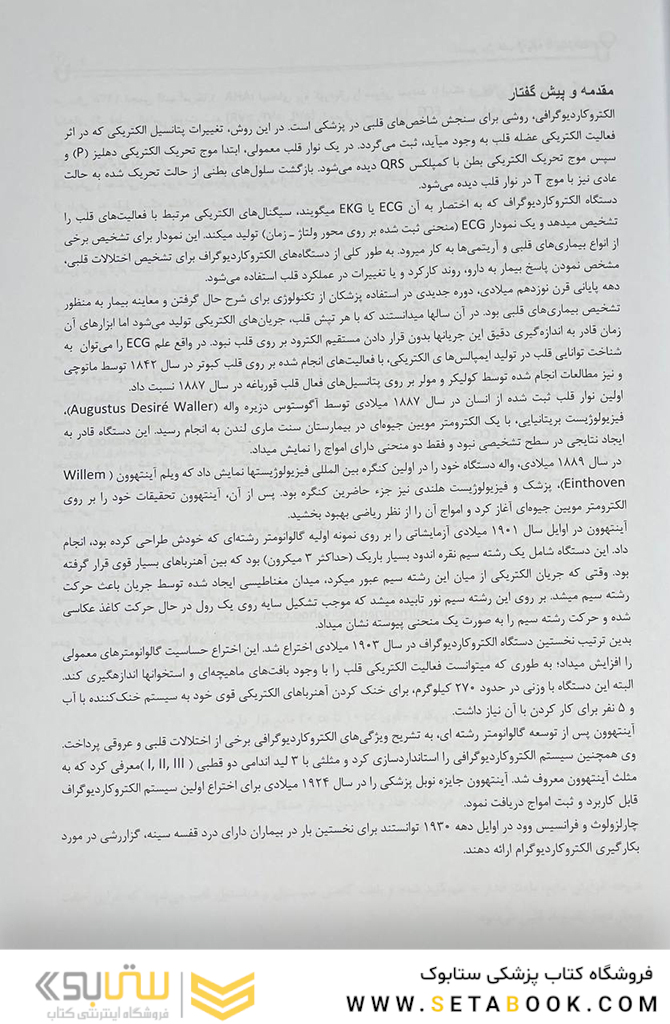 مقدمه و پیش گفتار
الکتروکاردیوگرافی، روشی برای سنجش شاخص‌های قلبی در پزشکی است. در این روش، تغییرات پتانسیل الکتریکی که در اثر
فعالیت الکتریکی عضله قلب به وجود میآید، ثبت می‌گردد. در یک نوار قلب معمولی، ابتدا موج تحریک الکتریکی دهلیز (P) و
سپس موج تحریک الکتریکی بطن با کمپلکس QRS دیده می‌شود. بازگشت سلول‌های بطنی از حالت تحریک شده به حالت
عادی نیز با موج T در نوار قلب دیده می‌شود.
دستگاه الکتروکاردیوگراف که به اختصار به آن ECG یا EKG میگویند، سیگنال‌های الکتریکی مرتبط با فعالیت‌های قلب را
تشخیص میدهد و یک نمودار ECG (منحنی ثبت شده بر روی محور ولتاژ ـ زمان) تولید میکند. این نمودار برای تشخیص برخی
از انواع بیماری‌های قلبی و آریتمی‌ها به کار میرود. به طور کلی از دستگاه‌های الکتروکاردیوگراف برای تشخیص اختلالات قلبی،
مشخص نمودن پاسخ بیمار به دارو، روند کارکرد و یا تغییرات در عملکرد قلب استفاده می‌شود.
دهه پایانی قرن نوزدهم میلادی، دوره جدیدی در استفاده پزشکان از تکنولوژی برای شرح حال گرفتن و معاینه بیمار به منظور
تشخیص بیماری‌های قلبی بود. در آن سالها میدانستند که با هر تپش قلب، جریان‌های الکتریکی تولید می‌شود اما ابزارهای آن
زمان قادر به اندازه‌گیری دقیق این جریانها بدون قرار دادن مستقیم الکترود بر روی قلب نبود. در واقع علم ECG را می‌توان به
شناخت توانایی قلب در تولید ایمپالس‌ها ی الکتریکی، با فعالیت‌های انجام شده بر روی قلب کبوتر در سال ۱۸۴۲ توسط ماتوچی
و نیز مطالعات انجام شده توسط کولیکر و مولر بر روی پتانسیل‌های فعال قلب قورباغه در سال ۱۸۸۷ نسبت داد.
اولین نوار قلب ثبت شده از انسان در سال ۱۸۸۷ میلادی توسط آگوستوس دزیره واله (Augustus Desiré Waller)،
فیزیولوژیست بریتانیایی، با یک الکترومتر مویین جیوه‌ای در بیمارستان سنت ماری لندن به انجام رسید. این دستگاه قادر به
ایجاد نتایجی در سطح تشخیصی نبود و فقط دو منحنی دارای امواج را نمایش میداد.
در سال ۱۸۸۹ میلادی، واله دستگاه خود را در اولین کنگره بین المللی فیزیولوژیستها نمایش داد که ویلم آینتهوون ( Willem
Einthoven)، پزشک و فیزیولوژیست هلندی نیز جزء حاضرین کنگره بود. پس از آن، آینتهوون تحقیقات خود را بر روی
الکترومتر مویین جیوه‌ای آغاز کرد و امواج آن را از نظر ریاضی بهبود بخشید.
آینتهوون در اوایل سال ۱۹۰۱ میلادی آزمایشاتی را بر روی نمونه اولیه گالوانومتر رشته‌ای که خودش طراحی کرده بود، انجام
داد. این دستگاه شامل یک رشته سیم نقره اندود بسیار باریک (حداکثر ۳ میکرون) بود که بین آهنرباهای بسیار قوی قرار گرفته
بود. وقتی که جریان الکتریکی از میان این رشته سیم عبور میکرد، میدان مغناطیسی ایجاد شده توسط جریان باعث حرکت
رشته سیم میشد. بر روی این رشته سیم نور تابیده میشد که موجب تشکیل سایه روی یک رول در حال حرکت کاغذ عکاسی
شده و حرکت رشته سیم را به صورت یک منحنی پیوسته نشان میداد.
بدین ترتیب نخستین دستگاه الکتروکاردیوگراف در سال ۱۹۰۳ میلادی اختراع شد. این اختراع حساسیت گالوانومترهای معمولی
را افزایش میداد؛ به طوری که میتوانست فعالیت الکتریکی قلب را با وجود بافت‌های ماهیچه‌ای و استخوانها اندازهگیری کند.
البته این دستگاه با وزنی در حدود ۲۷۰ کیلوگرم، برای خنک کردن آهنرباهای الکتریکی قوی خود به سیستم خنک‌کننده با آب
و ۵ نفر برای کار کردن با آن نیاز داشت.
آینتهوون پس از توسعه گالوانومتر رشته ای، به تشریح ویژگی‌های الکتروکاردیوگرافی برخی از اختلالات قلبی و عروقی پرداخت.
وی همچنین سیستم الکتروکاردیوگرافی را استانداردسازی کرد و مثلثی با ۳ لید اندامی دو قطبی ( I, II, III )معرفی کرد که به
مثلث آینتهوون معروف شد. آینتهوون جایزه نوبل پزشکی را در سال ۱۹۲۴ میلادی برای اختراع اولین سیستم الکتروکاردیوگراف
قابل کاربرد و ثبت امواج دریافت نمود.
چارلزولوث و فرانسیس وود در اوایل دهه ۱۹۳۰ توانستند برای نخستین بار در بیماران دارای درد قفسه سینه، گزاررشی در مورد
بکارگیری الکتروکاردیوگرام ارائه دهند.
فروشگاه کتاب پزشکی ستابوک
WWW.SETABOOK.COM
ستابوک
فروشگاه اینترنتی کتاب